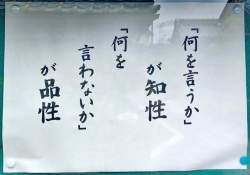 「何を言うか」
が知性
「何を
言わないか」
が品性